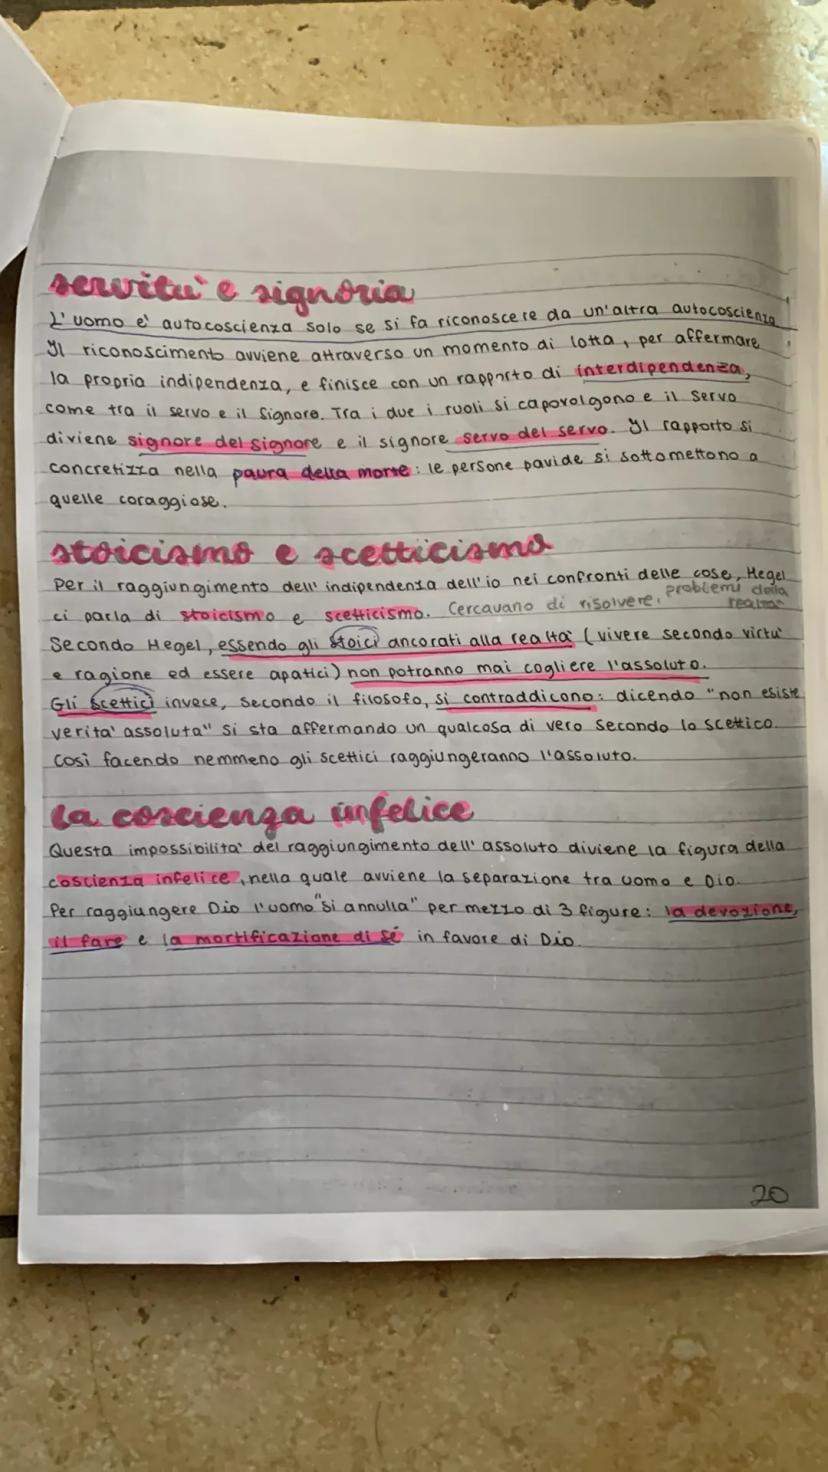 servitu' e signoria
L'uomo e' autocoscienza solo se si fa riconoscere da un'altra autocoscienza.
Il riconoscimento avviene attraverso un momento di lotta, per affermare
la propria indipendenza, e finisce con un rapporto di interdipendenza,
come tra il servo e il Signore. Tra i due i ruoli si capovolgono e il servo
diviene signore del signore e il signore servo del servo. Il rapporto si
concretizza nella paura della morte: le persone pavide si sottomettono a
quelle coraggiose.
stoicismo e scetticismo
Per il raggiungimento dell'indipendenza dell'io nei confronti delle cose, Hegel
ci parla di stoicismo e scetticismo. Cercavano di risolvere problemi della
realta'
Secondo Hegel, essendo gli stoici ancorati alla realta' (vivere secondo virtu'
e ragione ed essere apatici) non potranno mai cogliere l'assoluto.
Gli scettici invece, secondo il filosofo, si contraddicono: dicendo "non esiste
verita' assoluta" si sta affermando un qualcosa di vero secondo lo scettico.
Così facendo nemmeno gli scettici raggiungeranno l'assoluto.
la coscienza infelice
Questa impossibilita' del raggiungimento dell'assoluto diviene la figura della
coscienza infelice, nella quale avviene la separazione tra uomo e Dio.
Per raggiungere Dio l'uomo "si annulla" per mezzo di 3 figure: la devozione,
il fare e la mortificazione di sé in favore di Dio.
20